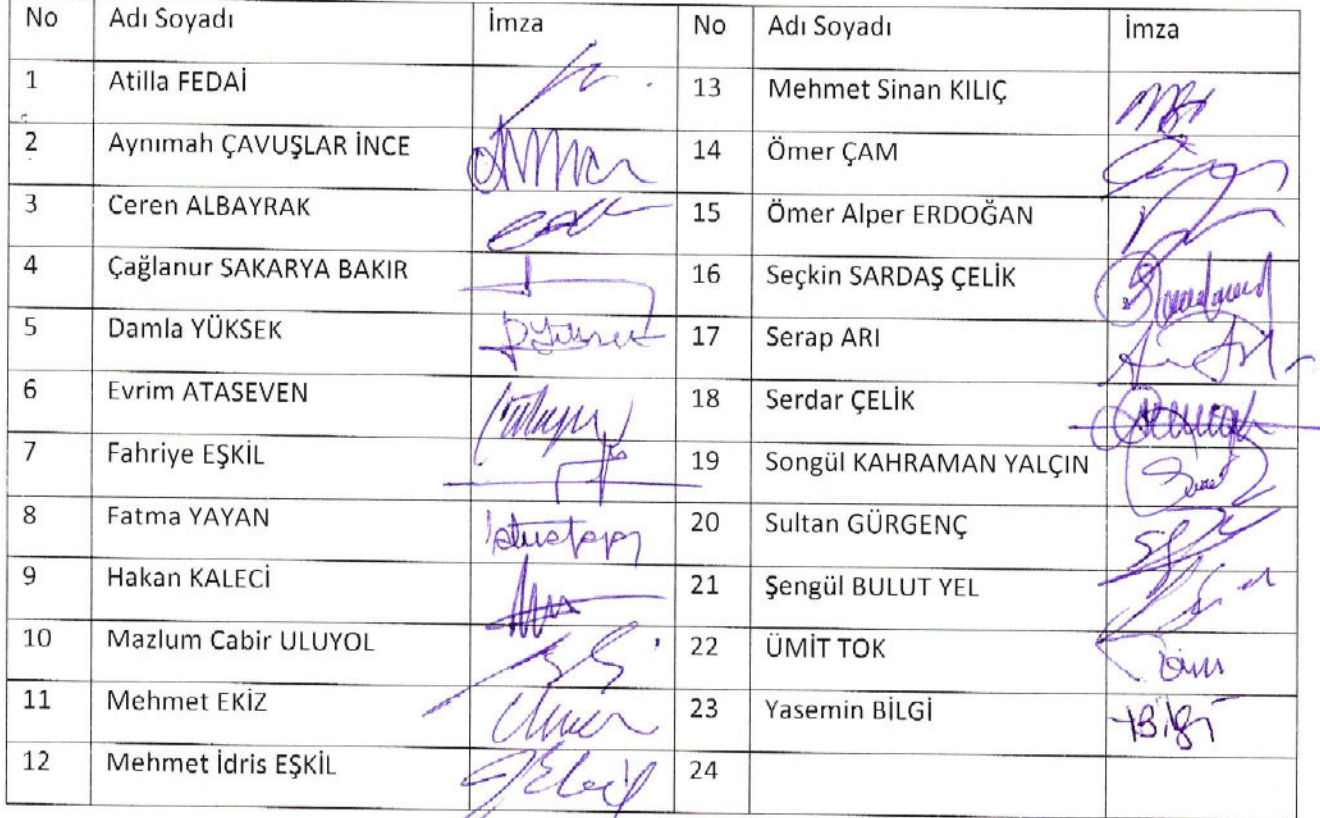 No Adı Soyadı İmza No Adı Soyadı İmza
1 Atilla FEDAİ 13 Mehmet Sinan KILIÇ
2 Aynımah ÇAVUŞLAR İNCE 14 Ömer ÇAM
3 Ceren ALBAYRAK 15 Ömer Alper ERDOĞAN
4 Çağlanur SAKARYA BAKIR 16 Seçkin SARDAŞ ÇELİK
5 Damla YÜKSEK 17 Serap ARI
6 Evrim ATASEVEN 18 Serdar ÇELİK
7 Fahriye EŞKİL 19 Songül KAHRAMAN YALÇIN
8 Fatma YAYAN 20 Sultan GÜRGENÇ
9 Hakan KALECİ 21 Şengül BULUT YEL
10 Mazlum Cabir ULUYOL 22 ÜMİT TOK
11 Mehmet EKİZ 23 Yasemin BİLGİ YBilgi
12 Mehmet İdris EŞKİL 24